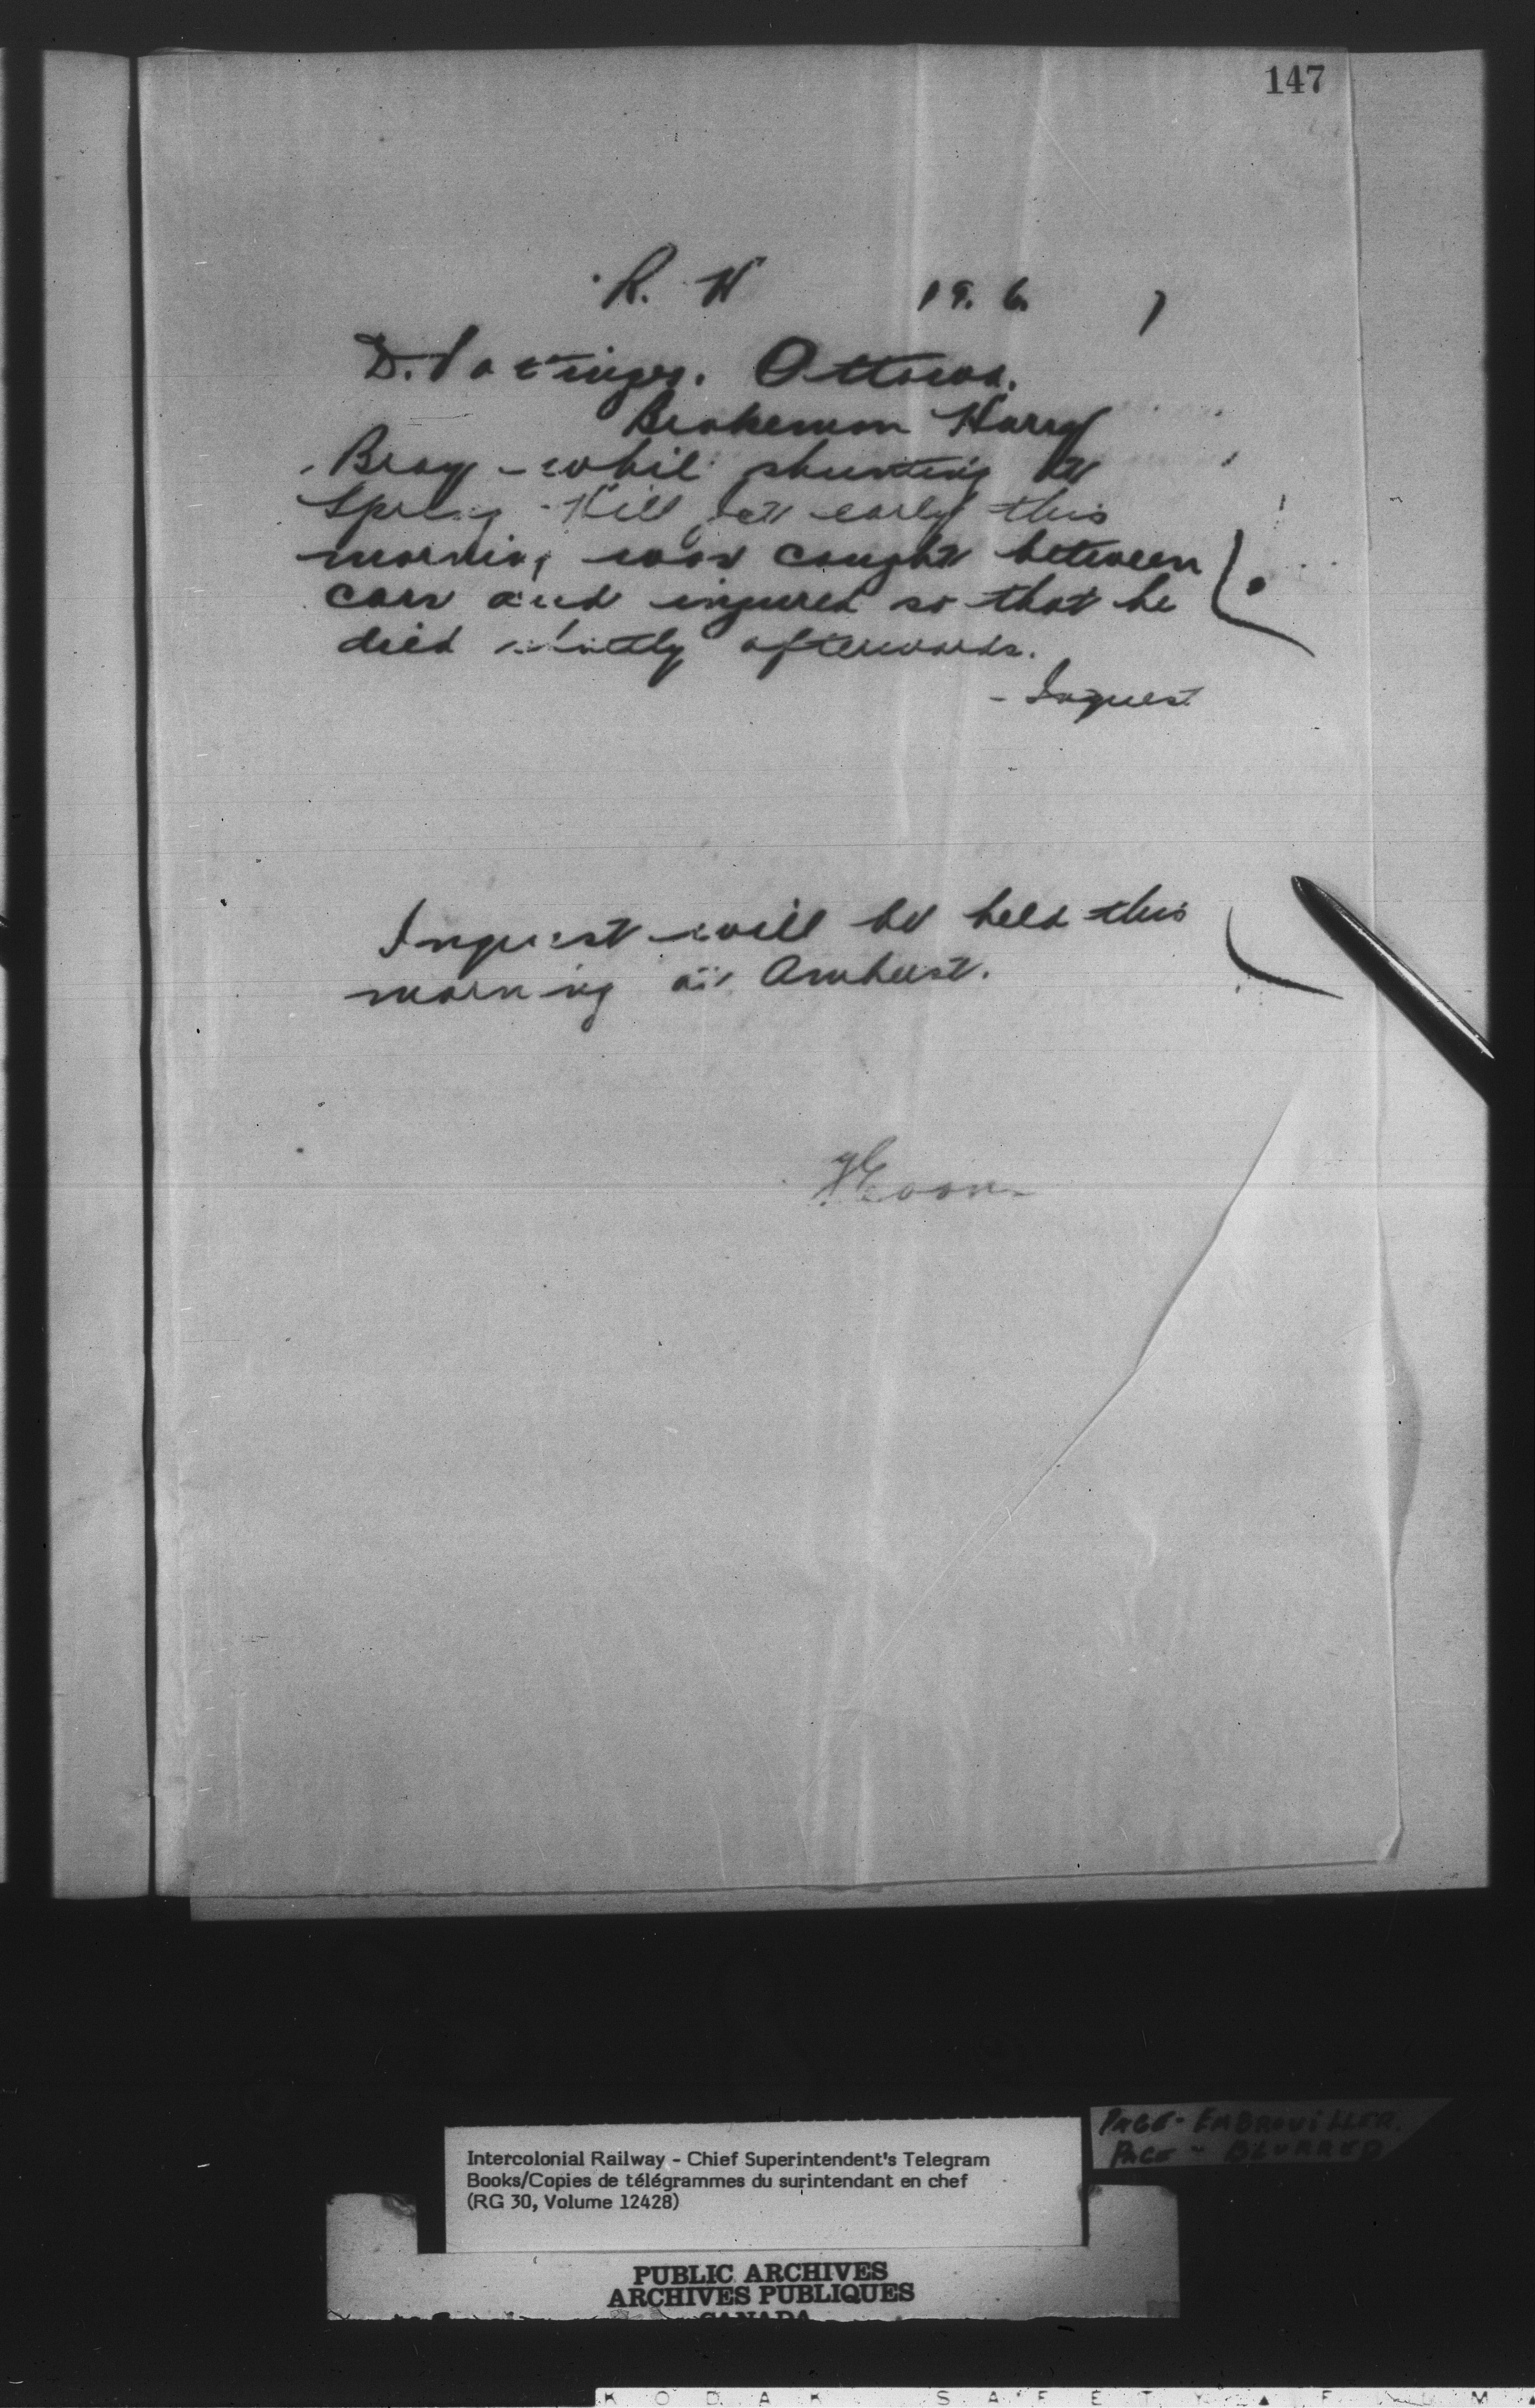 147
R. W 19. 6.
D. Pottinger. Ottawa.
Brakeman Harry
Bray while shunting at
Spring Hill Jct early this
morning was caught between
cars and injured so that he
died shortly afterwards.
- Inquest
Inquest will be held this
morning at Amherst.
PAGE - EMBROUILLER.
PAGE - BLURRED
Intercolonial Railway - Chief Superintendent's Telegram
Books/Copies de télégrammes du surintendant en chef
(RG 30, Volume 12428)
PUBLIC ARCHIVES
ARCHIVES PUBLIQUES
CANADA
KODAK SAFETY FILM